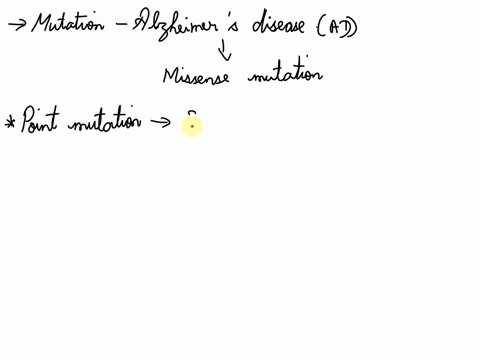 → Mutation - Alzheimer's disease (AD)
↓
Missense mutation
* Point mutation →